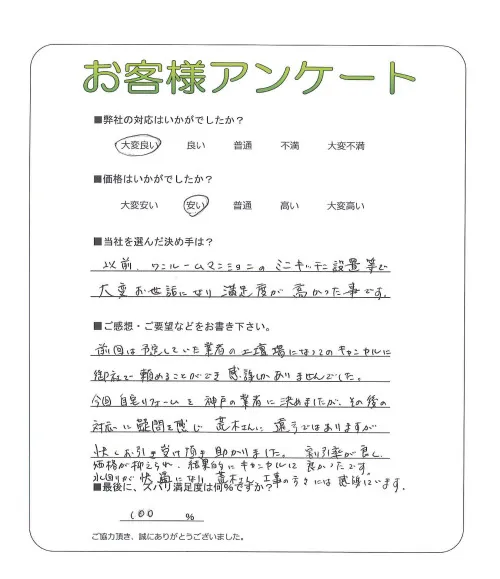 お客様アンケート
■弊社の対応はいかがでしたか？
大変良い 良い 普通 不満 大変不満
■価格はいかがでしたか？
大変安い 安い 普通 高い 大変高い
■当社を選んだ決め手は？
以前、ワンルームマンションのミニキッチン設置等で
大変お世話になり満足度が高かった事です。
■ご感想・ご要望などをお書き下さい。
前回は予定していた業者の工事場になってのキャンセルに
御社で頼めることができ感謝しかありませんでした。
今回自宅リフォームを神戸の業者に決めましたが、その後の
対応に疑問を感じ荒木さんに 違うではありますが
快くお引き受け頂き助かりました。割引率が良し、
価格が抑えられ、結果的にキャンセルして良かったです。
水回りが快適になり荒木さん、工事の方々には感謝しています。
■最後に、ズバリ満足度は何％ですか？
100 %
ご協力頂き、誠にありがとうございました。